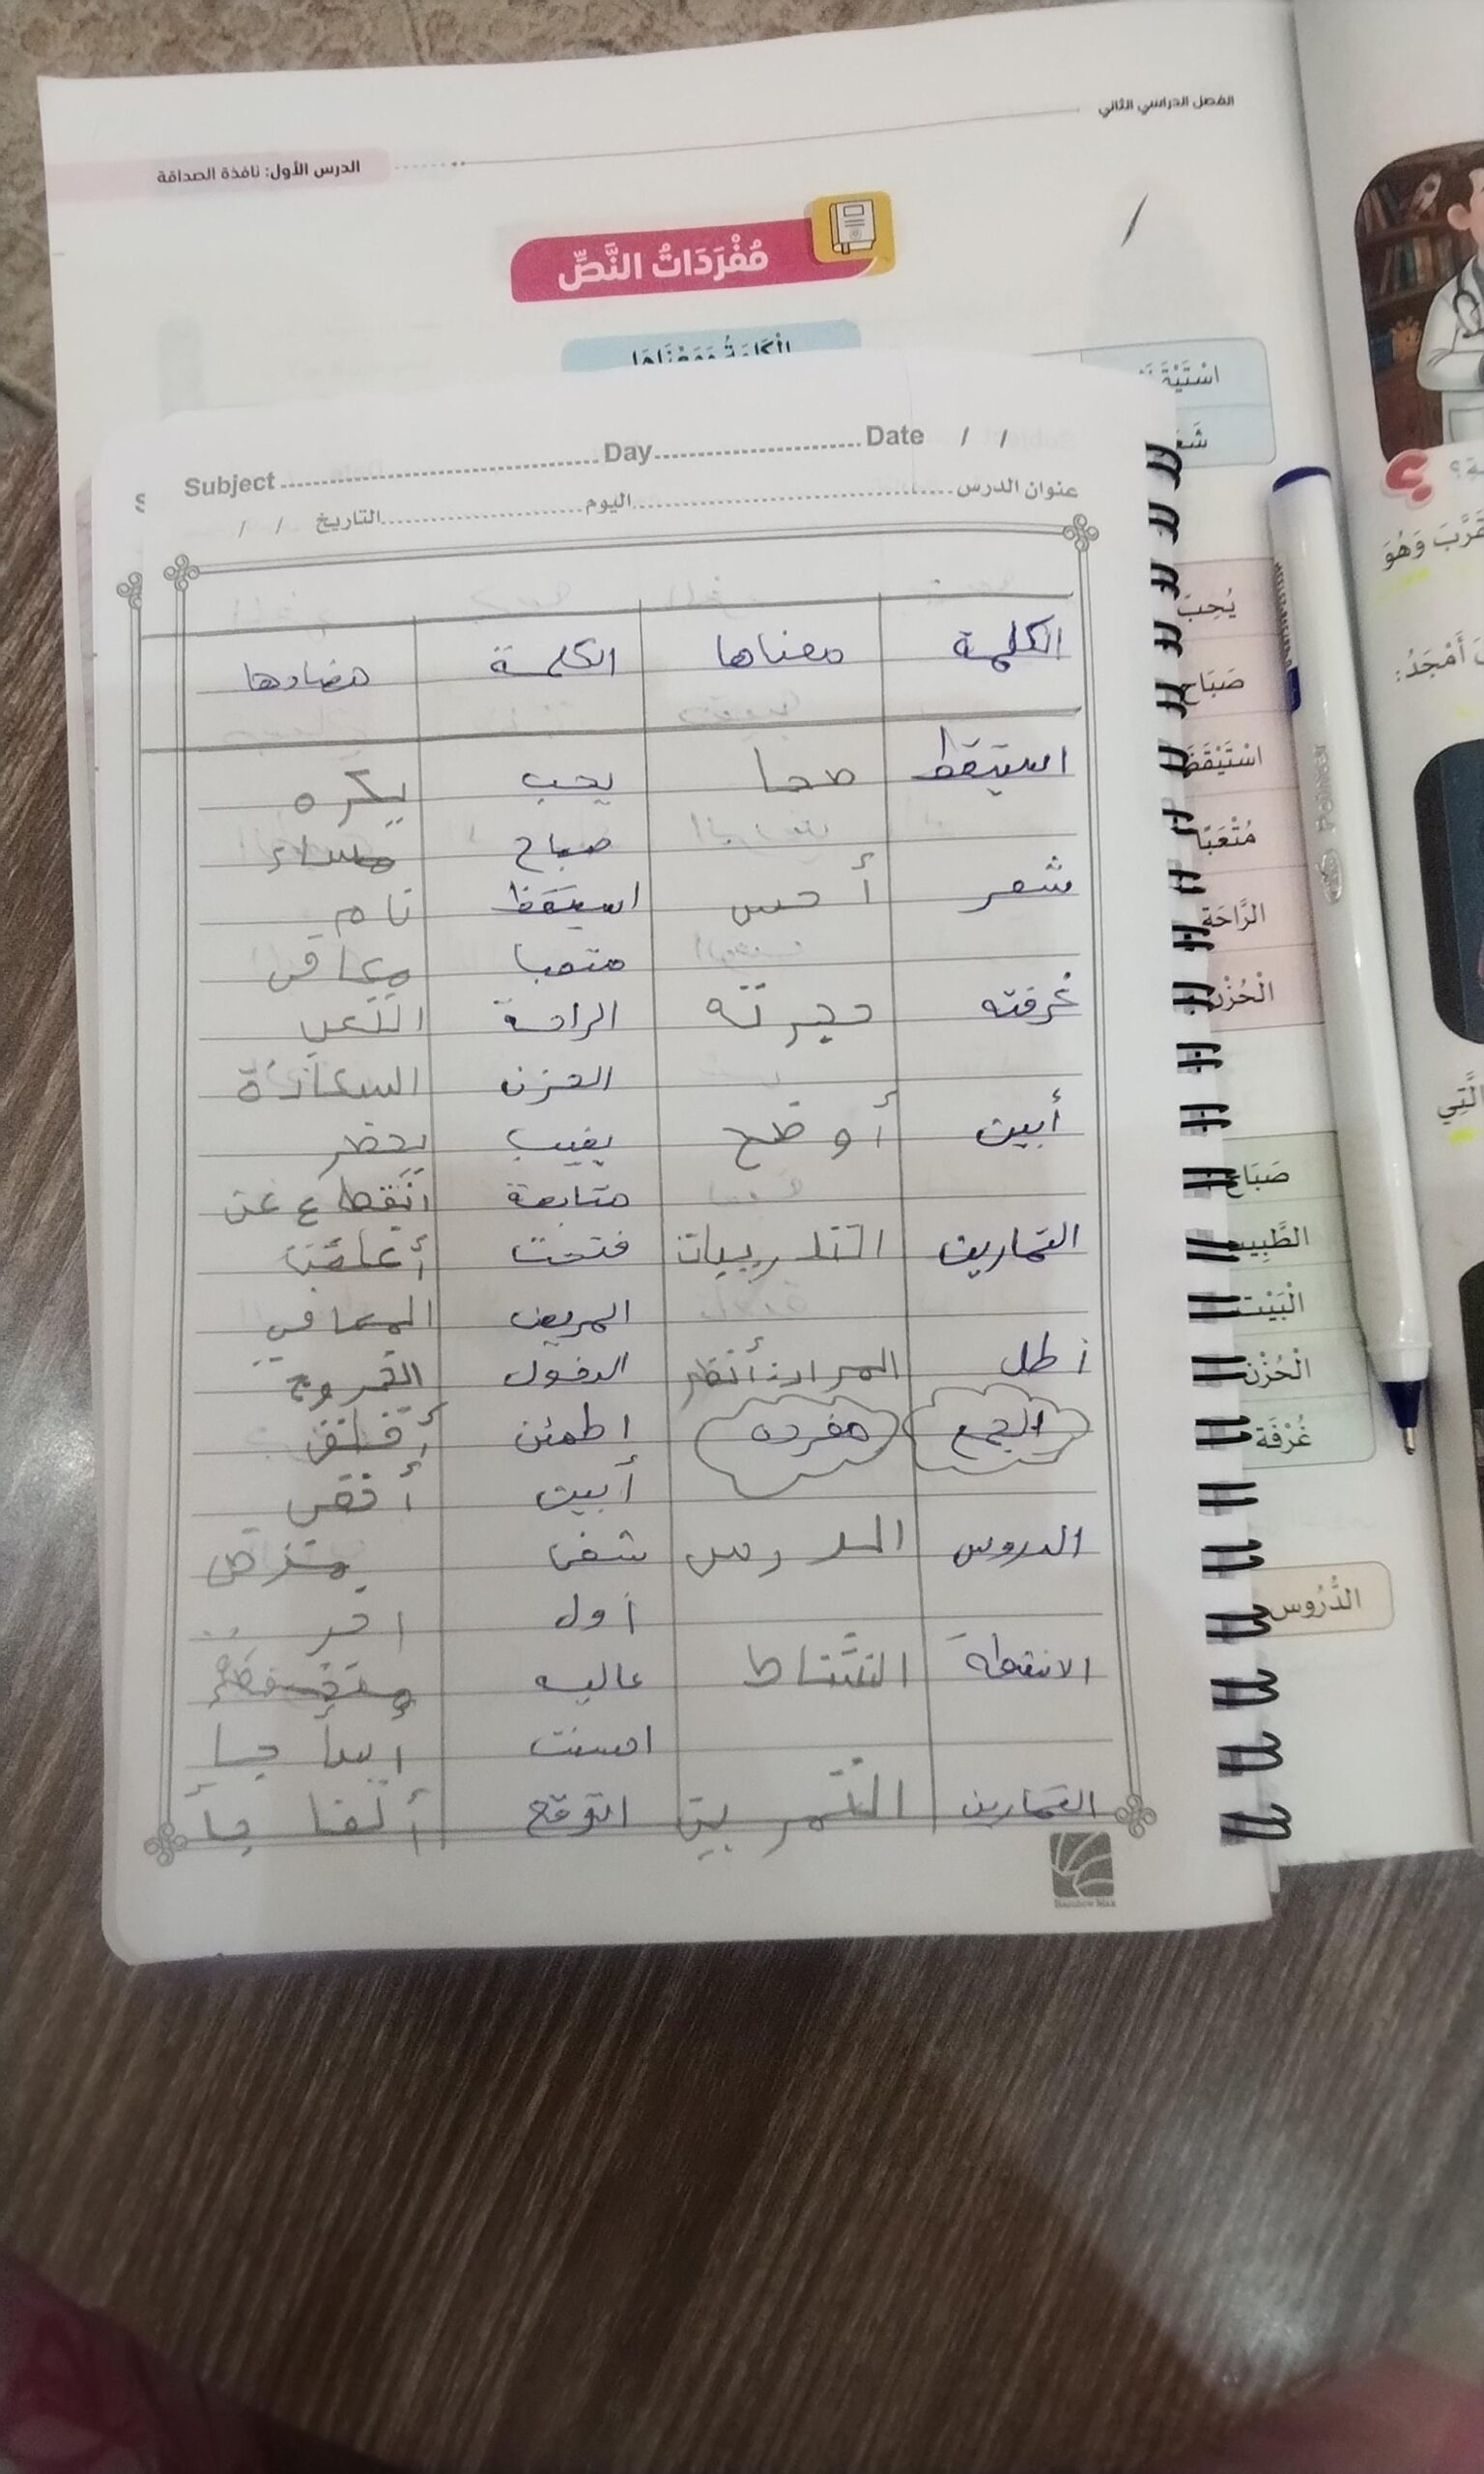 الفصل الدراسي الثاني
الدرس الأول: نافذة الصداقة
مُفْرَدَاتُ النَّصِّ
الْكَلِمَةُ وَمَعْنَاهَا
Subject Day Date / /
عنوان الدرس اليوم التاريخ / /
الكلمة معناها الكلمة مضادها
استيقظ صحا يحب يكره
صباح مساء
شعر أحس استيقظ نام
متعبا
غرفته حجرته الراحة التعب
الحزن السعادة
أبين أوضح يغيب يحظر
متابعة انقطاع عن
التمارين التدريبات فتحت
المريض المعافي
أطل المراد: أنظر الدخول الخروج
الجمع مفرده اطمئن
أبين أخفي
الدروس الدرس شفى
أول اخر
الانشطة النشاط عاليه
احسنت
التمارين التمرين اتوقع
اسْتَيْقَظَ
يُحِبّ
صَبَاح
اسْتَيْقَظَ
مُتْعَبًا
الرَّاحَة
الْحُزْن
صَبَاح
الطَّبِيب
الْبَيْت
الْحُزْن
غُرْفَة
الدُّرُوس
وَهُوَ
أَمْجَدُ:
الَّتِي
Rainbow Max
Pointer